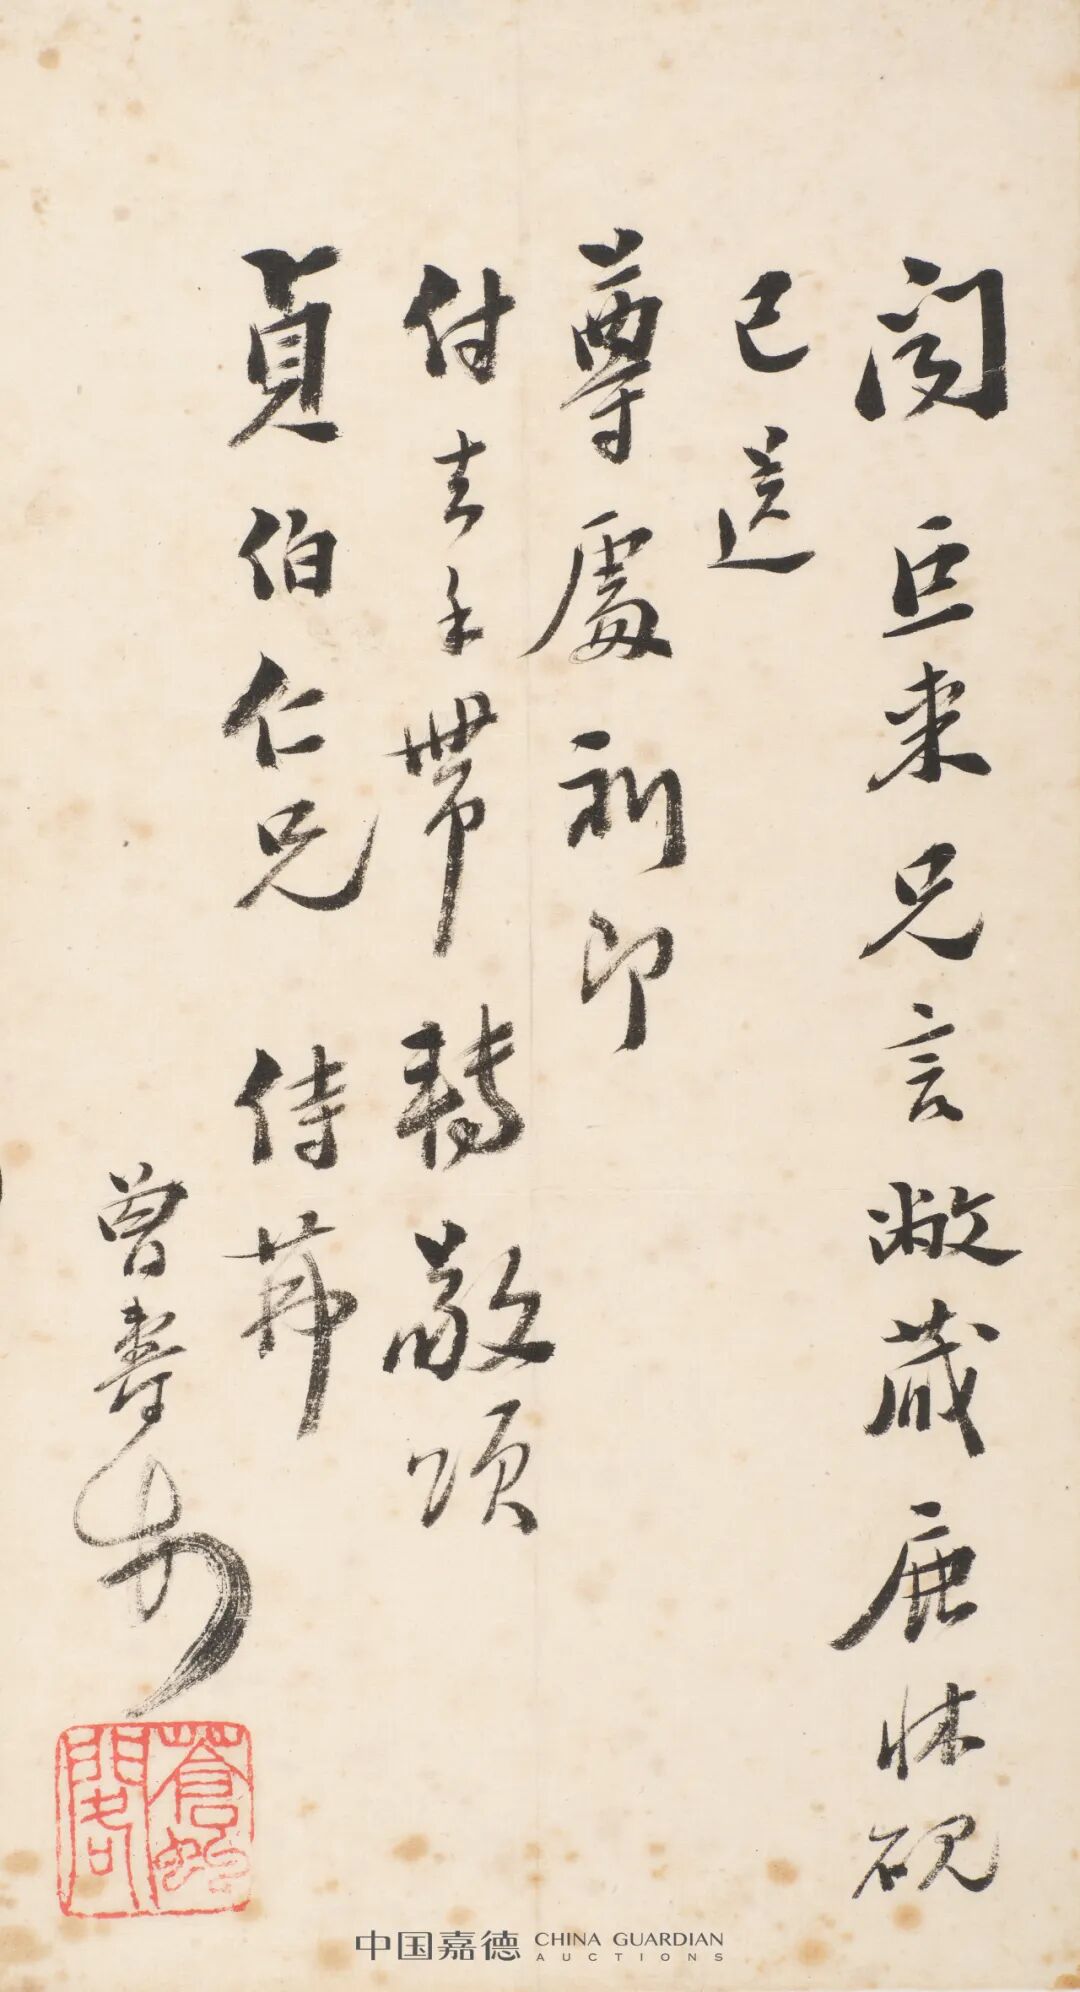 闻巨来兄言敝藏鹿床砚
已送
尊处利印
付去手带转敬颂
贞伯仁兄 侍茀
曾寿
苍虬阁
中国嘉德 CHINA GUARDIAN
AUCTIONS